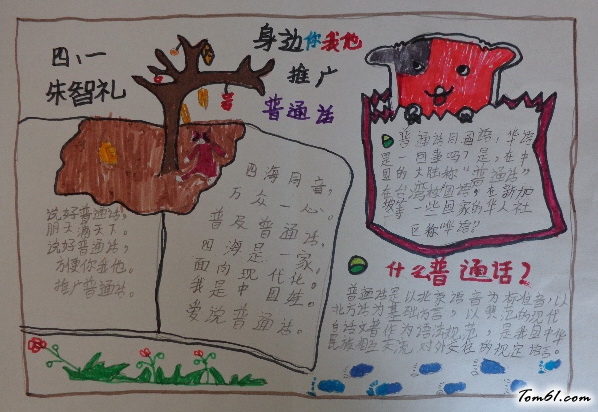 四、一
朱智礼
身边你我他
推广
普通话
说好普通话，
朋天满天下。
说好普通话，
方便你我他。
推广普通话。
四海同音，
万众一心。
普及普通话，
四海是一家，
面向现代化。
我是中国娃。
爱说普通话。
普通话同国语，华语
是一回事吗？是，在中
国的大陆称“普通话”
在台湾称国语，在新加
坡等一些国家的华人社
区称“华语”
什么普通话？
普通话是以北京语音为标准音，以
北方话为基础方言，以典范的现代
白话文著作为语法规范，是我国中华
民族相互交流 对外交往的规定语言。
Tom61.com